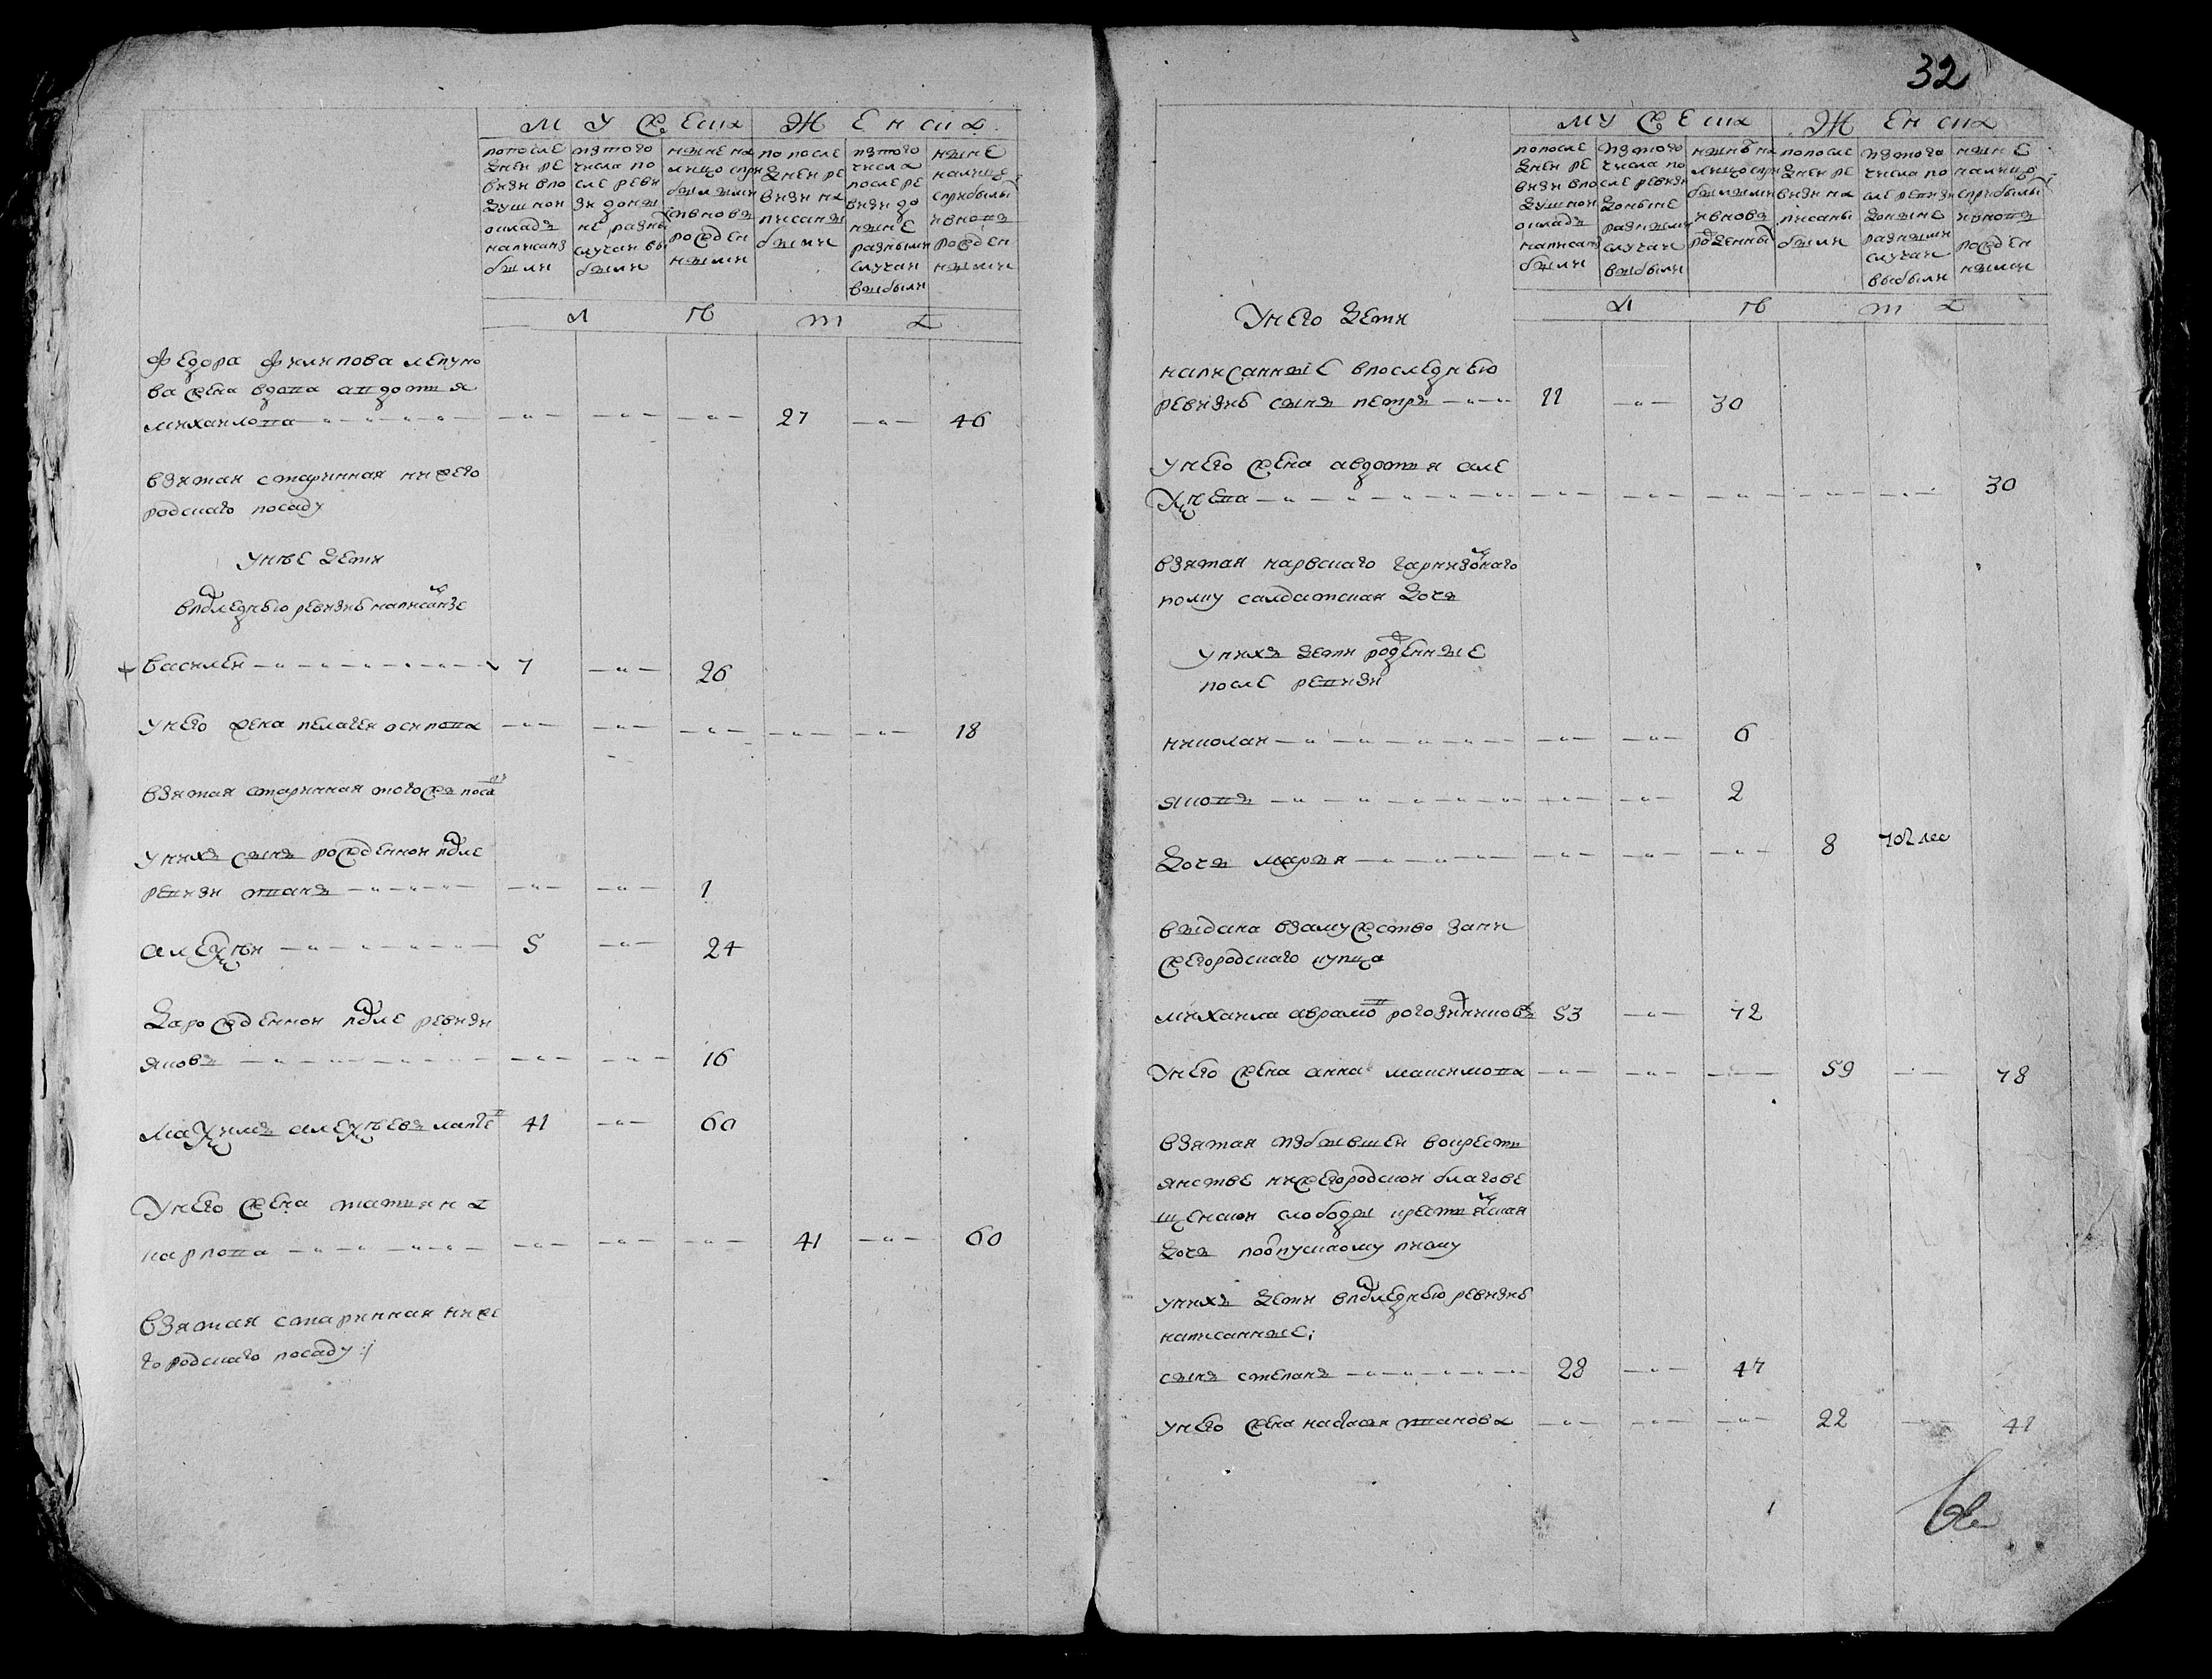 32
мужеска женска
попосле
дней ре
визи впо
душной
окладъ
написанъ
были
изтого
числа по
сле реви
зи доны
не разны
случаи вы
были
ныне на
лицо спри
былыми
ивновь
рожден
ными
по после
дней ре
визи на
писаны
были
изтого
числа
после ре
визи до
ныне
разными
случаи
выбыли
ныне
налицо
сприбылы
ивновь
рожден
ными
л ѣ т а
Федора Филипова лепуно
ва жена вдова авдотья
михайлова 27 46
взятая старинная нижего
родскаго посаду
унѣе дети
впослѣднею ревизию написанные
+ василей 7 26
унего жена пелагея осипова 18
взятая старинная тогожъ поса
унихъ сынъ рожденной после
ревизи иванъ 1
алеѯѣй 5 24
Дарожденной после ревизи
яковъ 16
Маѯимъ алеѯѣевъ лапте 41 60
Унего жена татьяна
карпова 41 60
Взятая старинная ниже
городскаго посаду
мужеска женска
попосле
дней ре
визи впо
душной
окладъ
написанъ
были
изтого
числа по
сле ревизи
доныне
разными
случаи
выбыли
нынѣ на
лицо спри
былыми
ивновь
рожденны
попосле
дней ре
визи на
писаны
были
изтого
числа по
сле ревизи
доныне
разными
случаи
выбыли
ныне
налицо
сприбылы
ивновь
рожден
ными
л ѣ т а
Унего дети
написанные впоследнею
ревизию сынъ петръ 11 30
унего жена авдотья але
ѯѣева 30
взятая нарвскаго гарнизоннаго
полку салдатская дочь
унихъ дети рожденные
после ревизи
николай 6
яковъ 2
дочь марья 8
выдана взамужство зани
жегородскаго купца
михаила аврамов рогозинниковъ 53 72
Унего жена анна максимова 59 78
взятая избывшей вокресть
янстве нижегородской благове
щенской слободы крестьянская
дочь поотпускному писму
унихъ дети впоследнею ревизию
написанные;
сынъ степанъ 28 47
унего жена настасья иванова 22 41